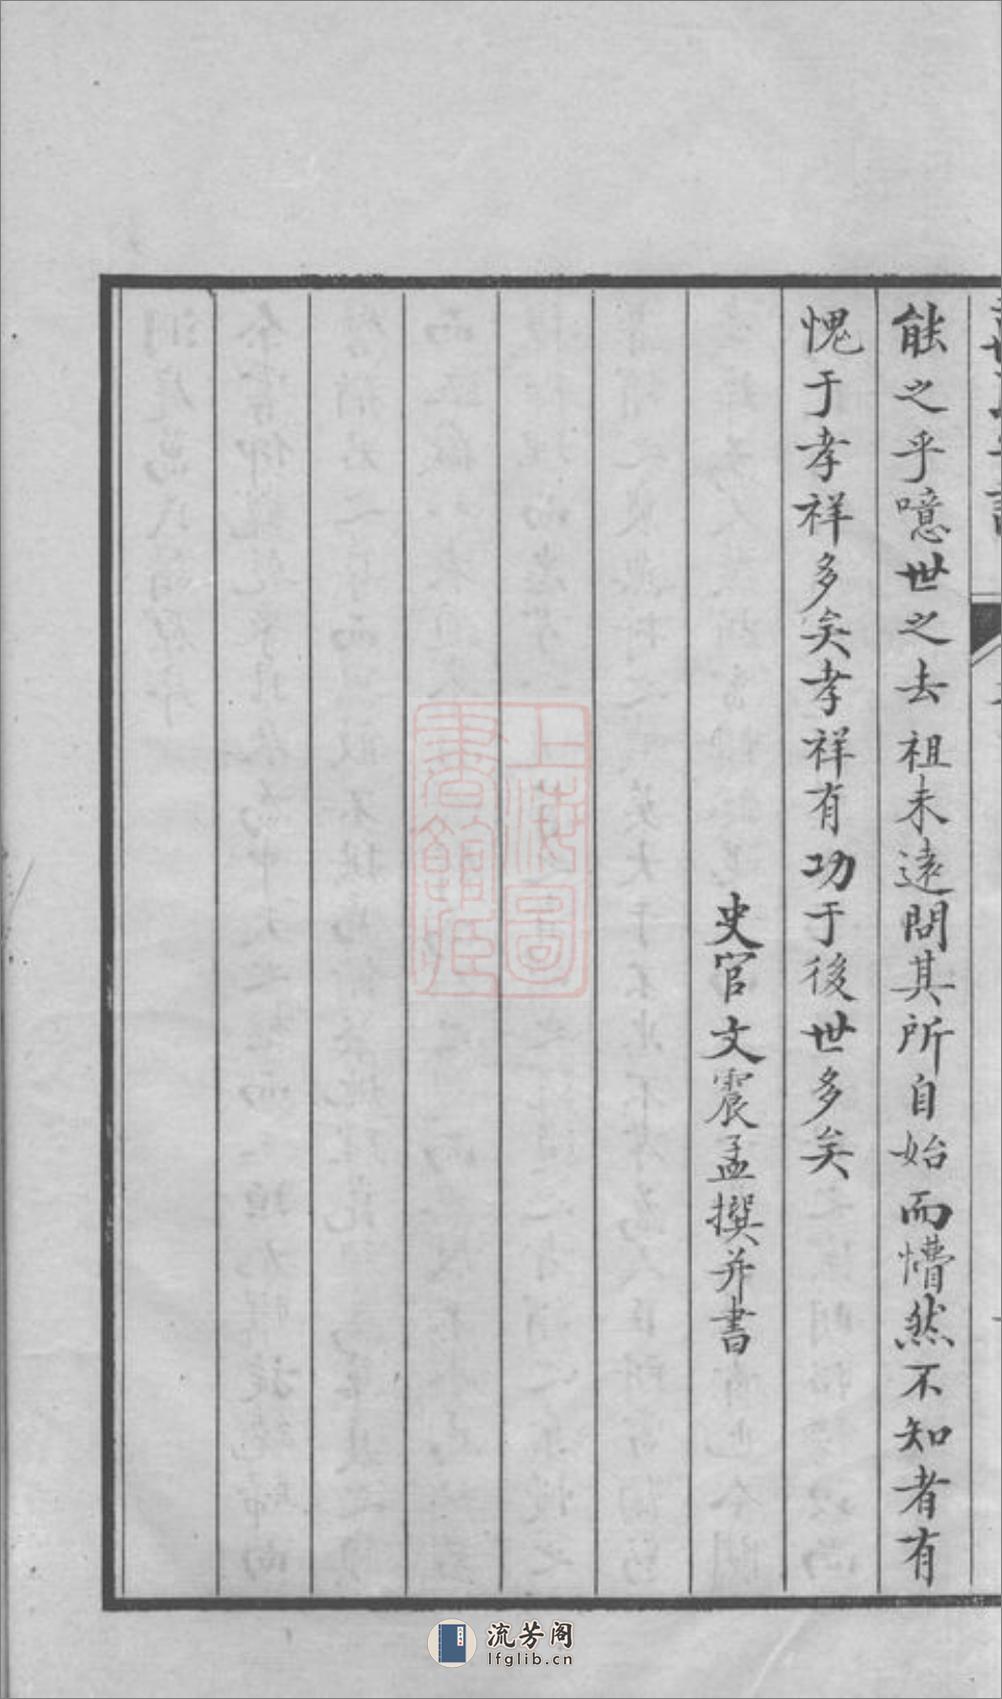 能之乎噫世之去祖未遠問其所自始而懵然不知者有
愧于孝祥多矣孝祥有功于後世多矣
史官文震孟撰并書
上海圖書館藏
流芳阁
lfglib.cn